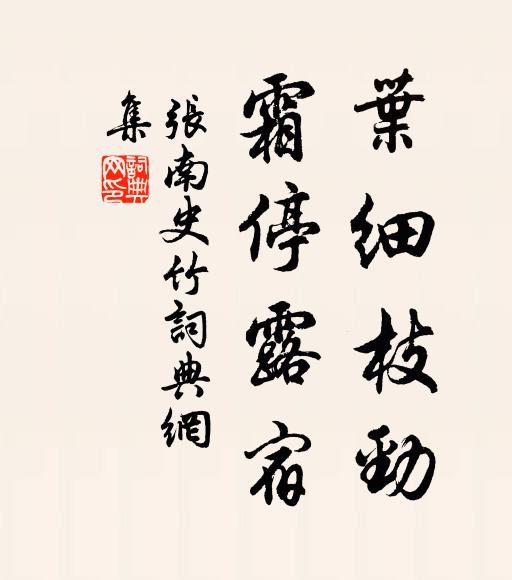 葉細枝勁
霜停露宿
張南史竹詞典網
集
詞典網印